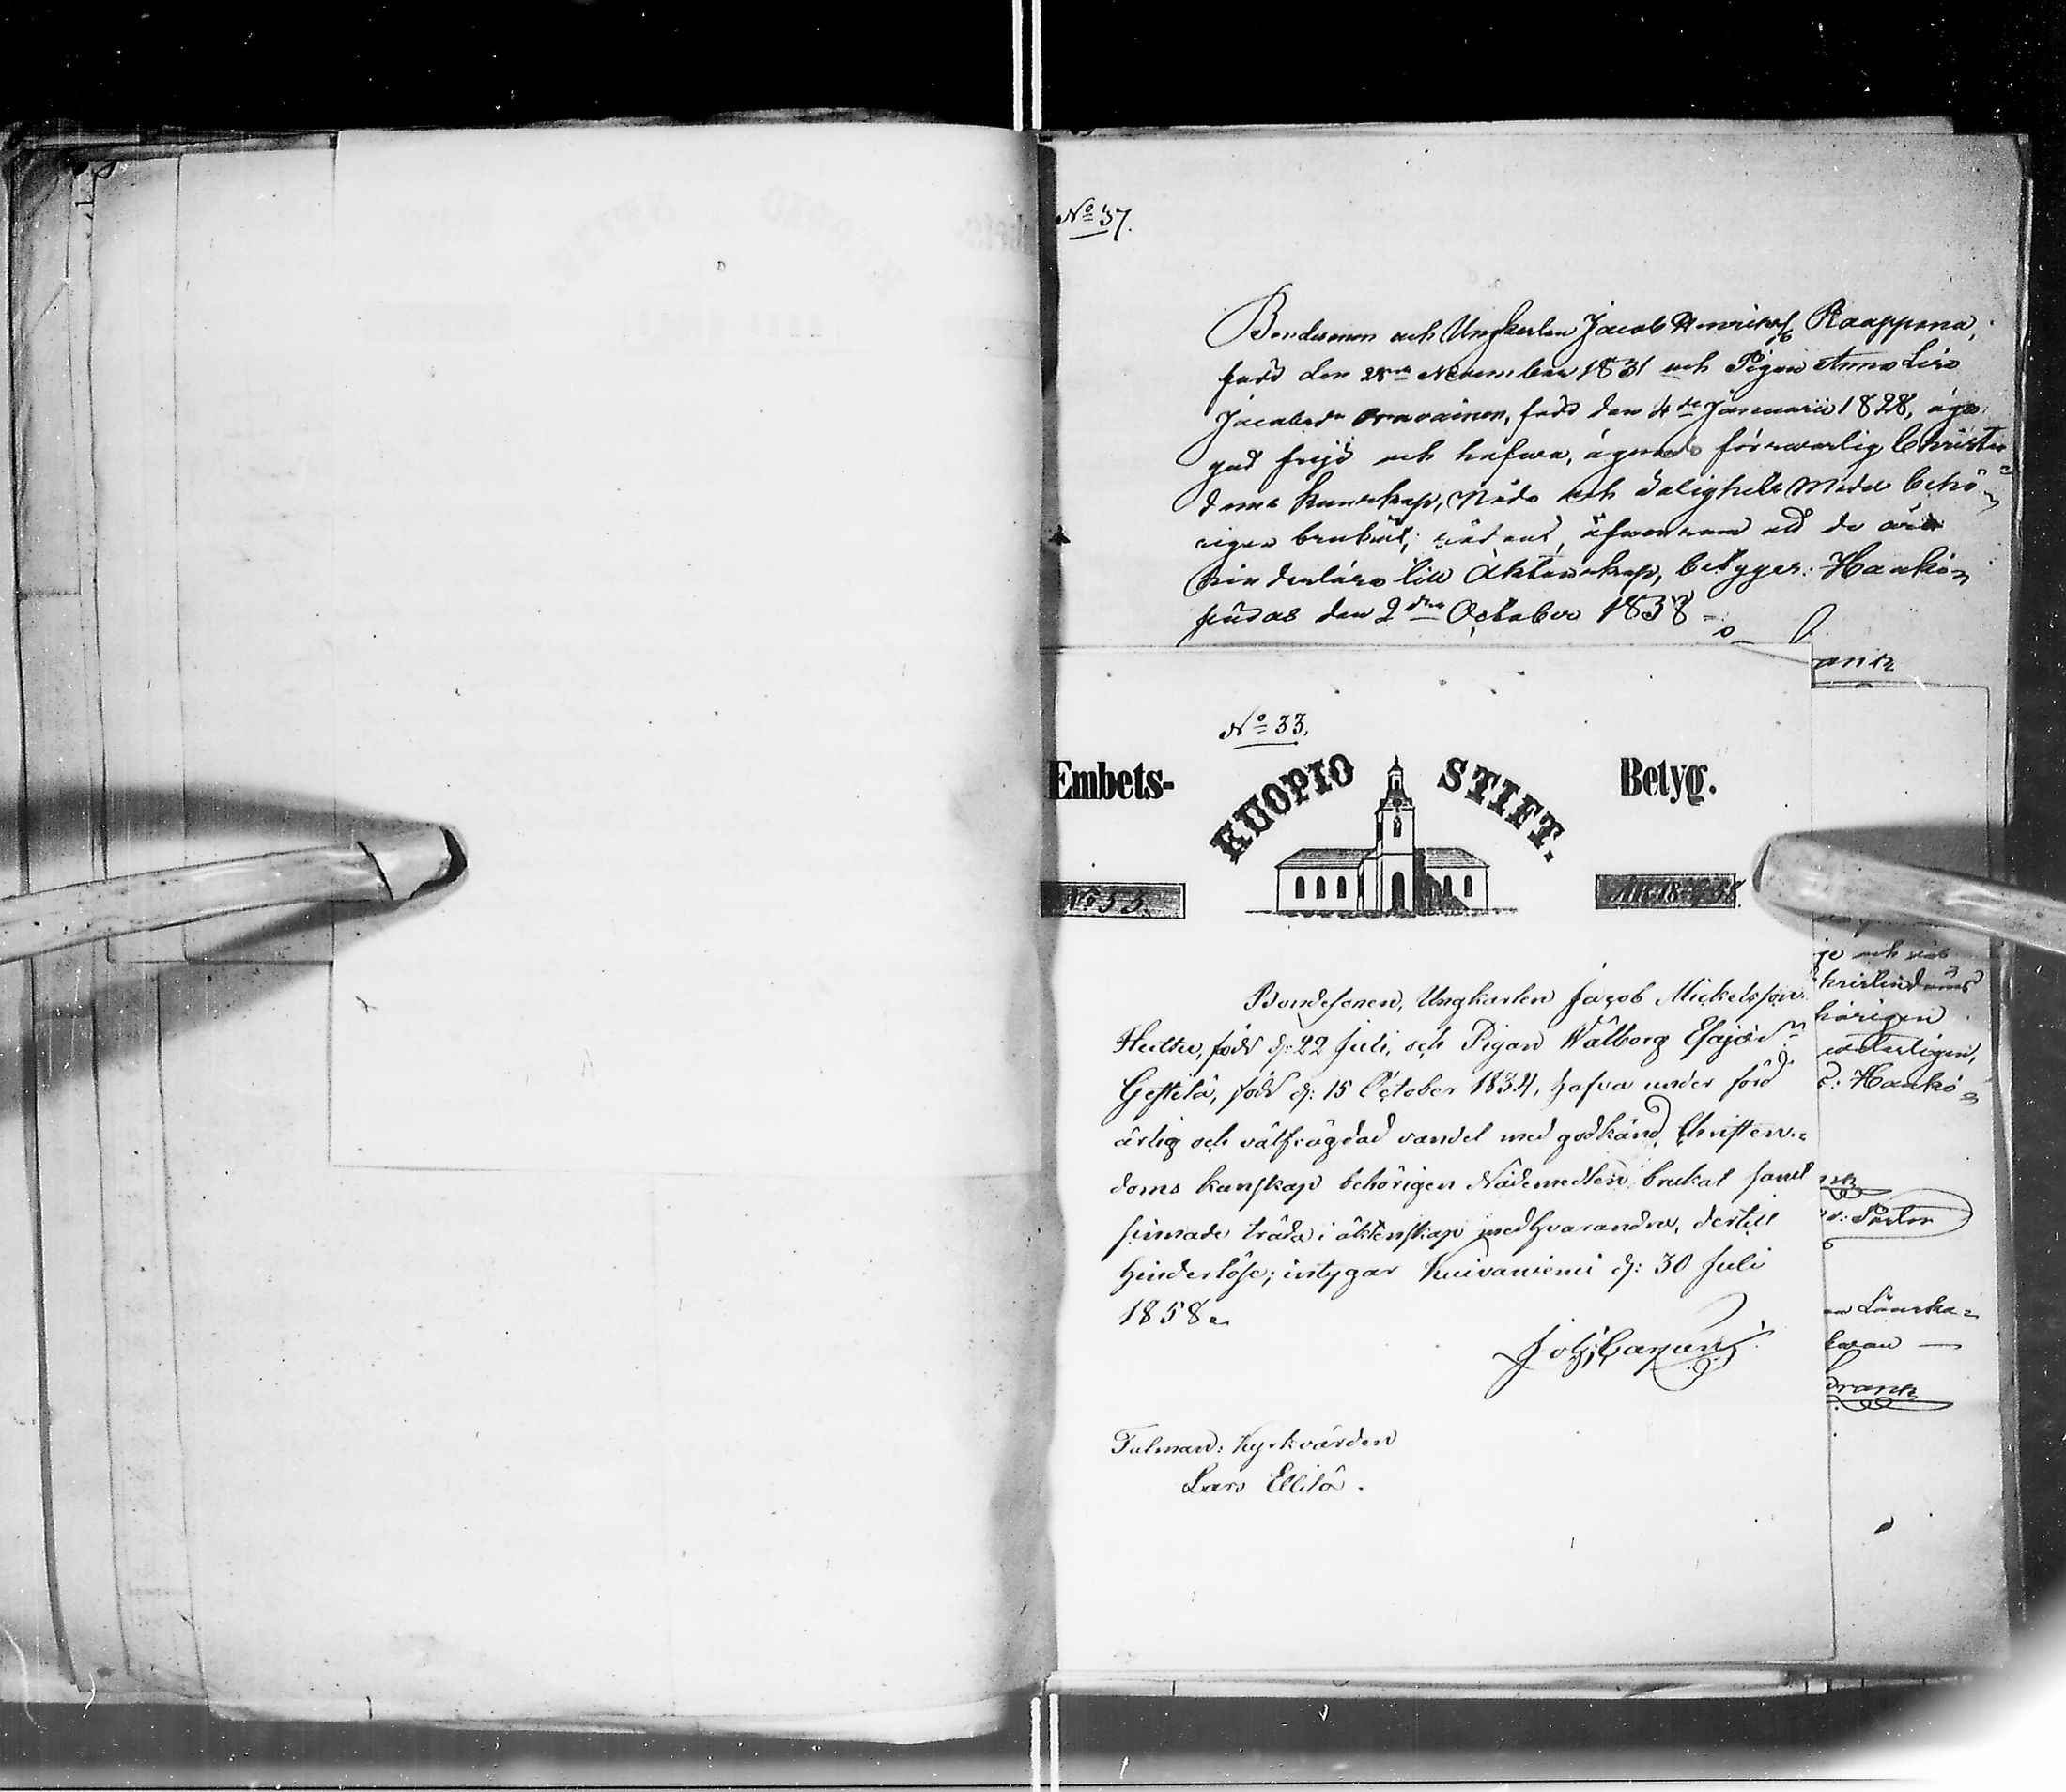 No 37.
Bondesonen och Ungkarlen Jacob Henricss. Raappana,
född den 28de November 1831 och Pigan Anna Lisa
Jacobsdr Oravainen, född den 4de Januarii 1828, äga
god frejd och hafva, ägande försvarlig Christen-
doms kunskap, Nåde och Salighets Medel behö-
rigen brukat, äfvensom att de äro
hinderlösa till Äktenskap, betygar: Hauki-
pudas den 2dra October 1858
No 33.
Embets- KUOPIO STIFT. Betyg.
No 53. År 1858.
Bondesonen, Ungkarlen Jacob Mickelsson
Huttu, född d: 22 Juli, och Pigan Walborg Esajædr
Gestilä, född d: 15 October 1834, hafva under förd
ärlig och välfrägdad vandel med godkänd Christen-
doms kunskap behörigen Nådemedlen brukat samt
sinnade träda i äktenskap med hvarandra, dertill
hinderlöse; intygar Kuivaniemi d: 30 Juli
1858.
Joh: Cajanus
Talman: Kyrkvärden
Lars Ellilä.
och
hristendoms
hörigen
: Hauki-
: Pastor
Länska-